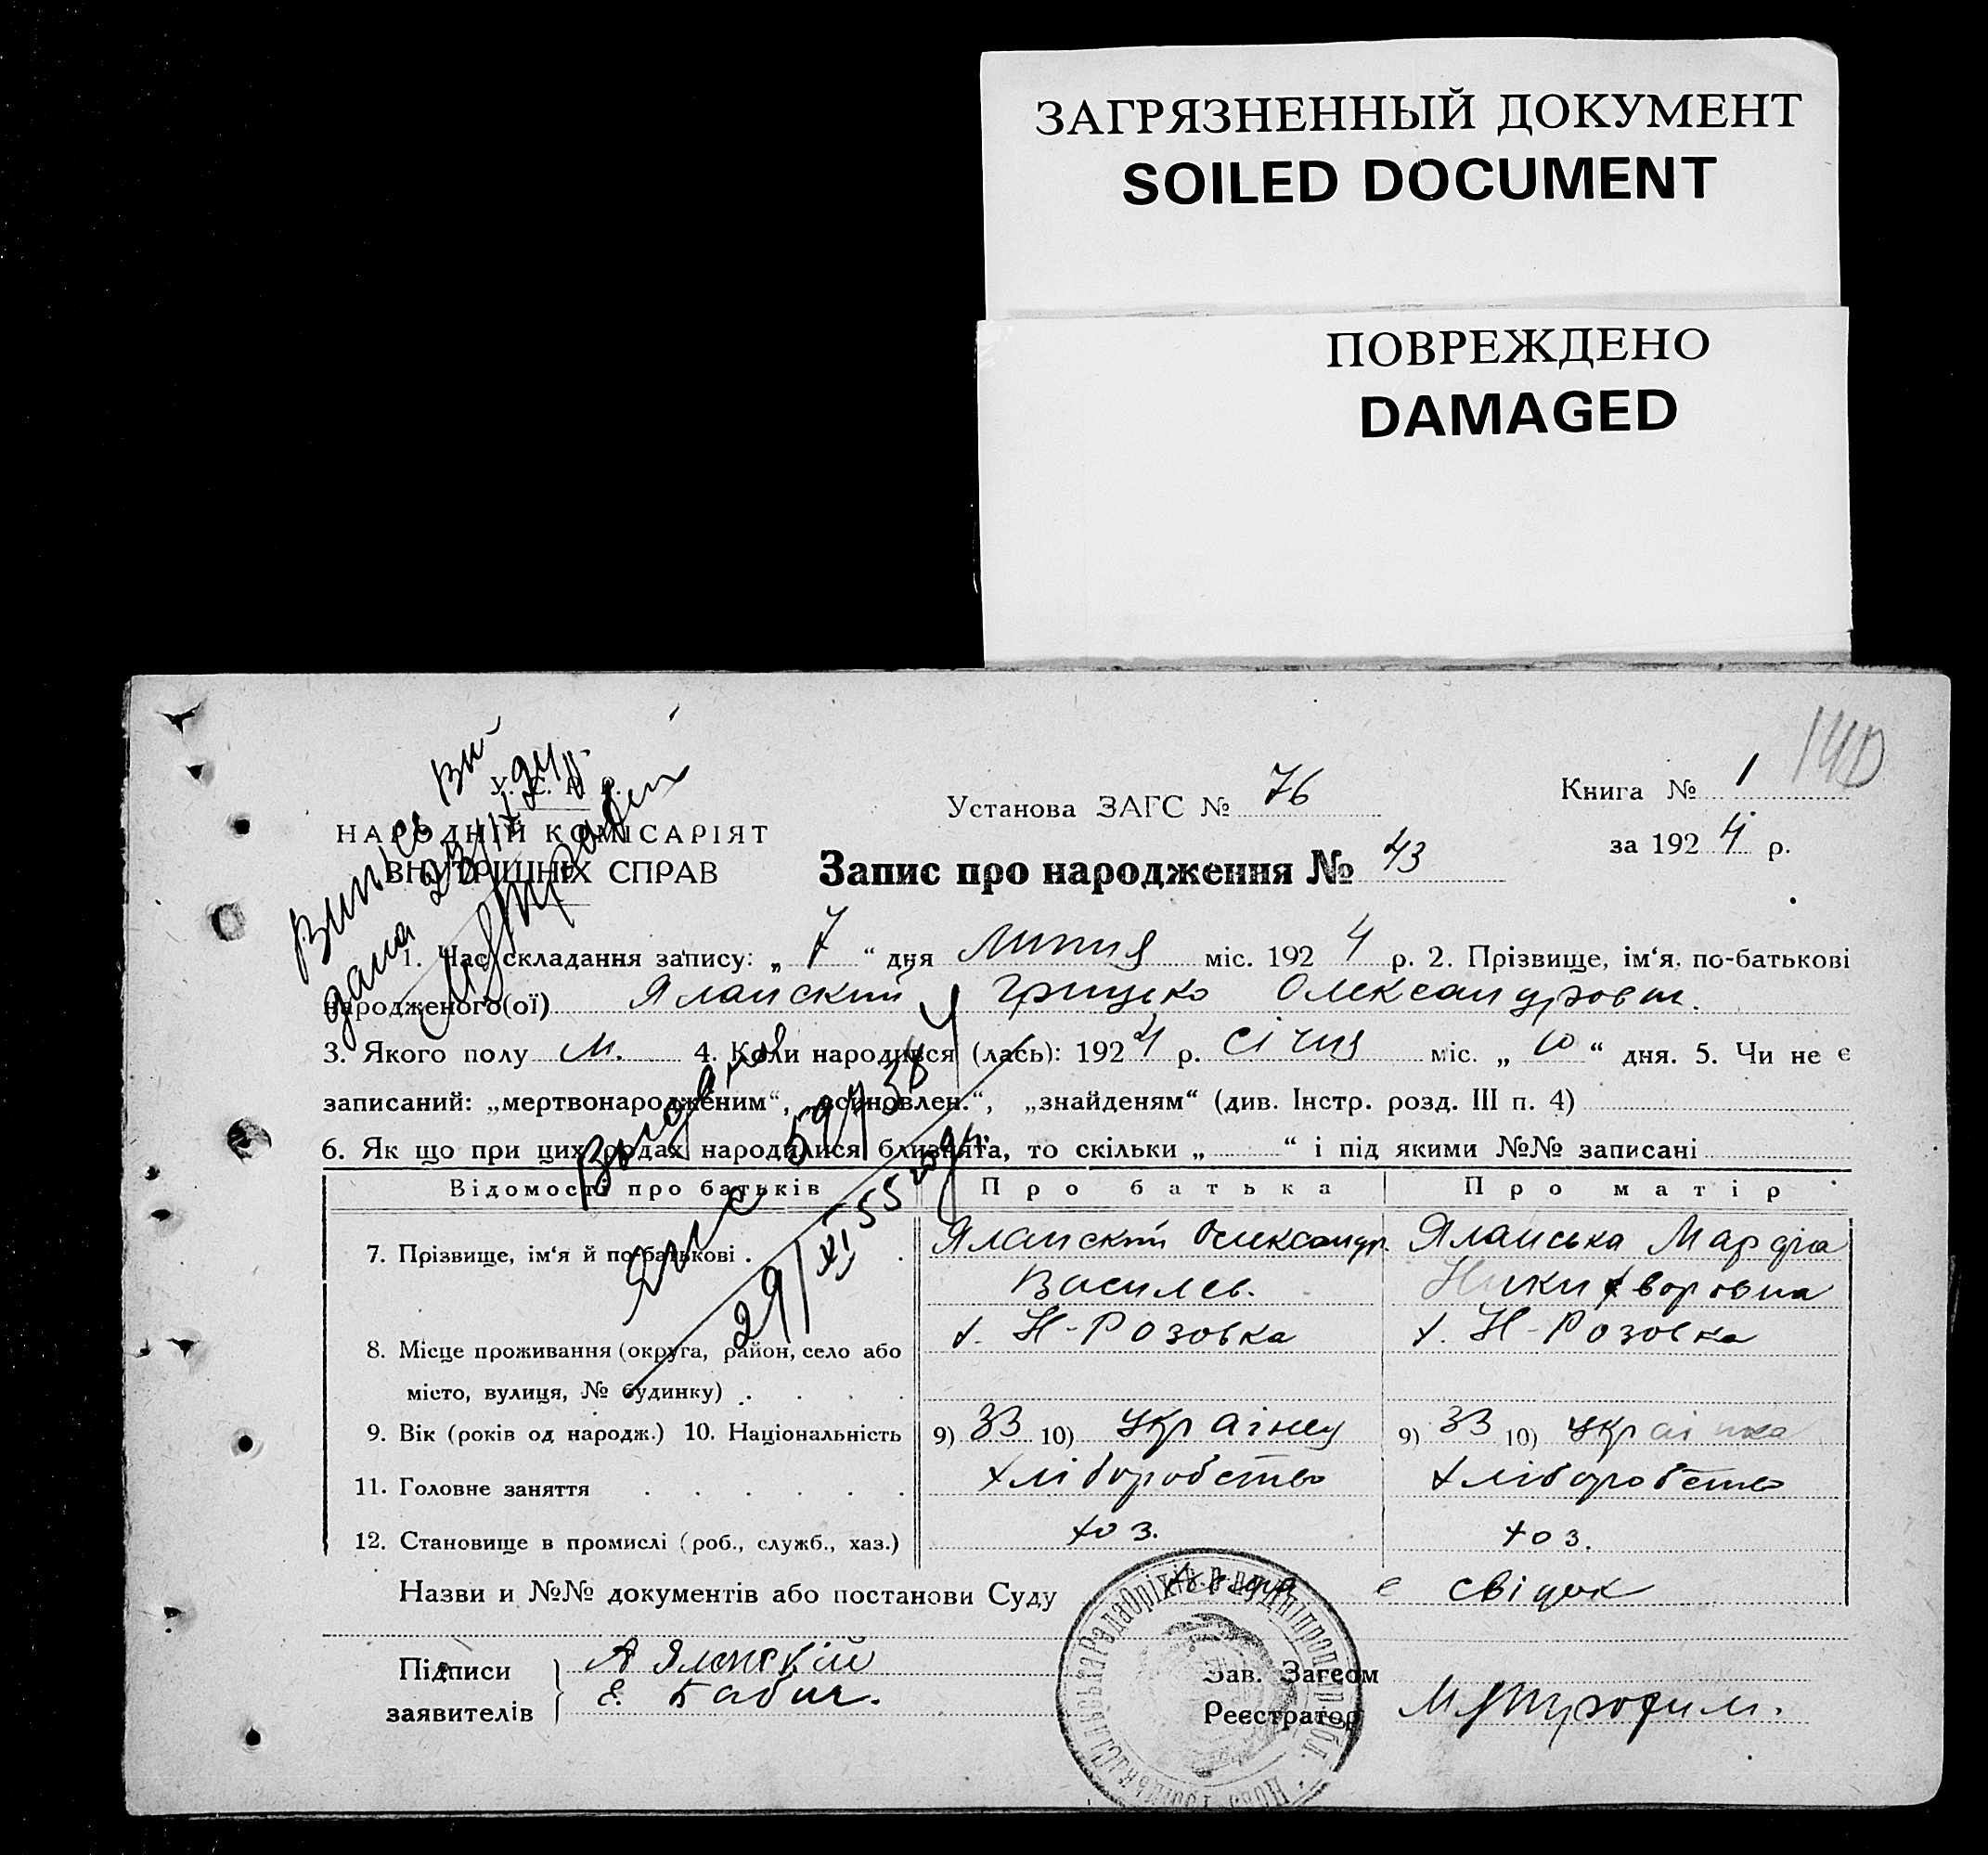 ЗАГРЯЗНЕННЫЙ ДОКУМЕНТ
SOILED DOCUMENT
ПОВРЕЖДЕНО
DAMAGED
140
У. С. Р. Р.
НАРОДНІЙ КОМІСАРІЯТ
ВНУТРІШНІХ СПРАВ
Випись ви-
дана 23/IX 24 р.
Установа ЗАГС № 76
Книга № 1
за 1924 р.
Запис про народження № 43
1. Час складання запису: „ 7 “ дня Липня міс. 1924 р. 2. Прізвище, ім‘я. по-батькові
народженого(ої) Яланский Грицько Олександрович.
3. Якого полу м. 4. Коли народився (лась): 1924 р. Січня міс. „ 10 “ дня. 5. Чи не є
записаний: „мертвонародженим“, „осиновлен.“, „знайденям“ (див. Інстр. розд. III п. 4)
6. Як що при цих родах народилися близнята, то скільки „ “ і під якими №№ записані
Выдано
29/XI 55
Відомості про батьків Про батька Про матір
7. Прізвище, ім‘я й по-батькові . . Яланский Олександр. Яланська Марфа
Василев. Никифворовна
8. Місце проживання (округа, район, село або х. Н-Розовка х. Н-Розовка
місто, вулиця, № будинку) . . . .
9. Вік (років од народж.) 10. Національність 9) 33 10) Українец 9) 33 10) Українка
11. Головне заняття . . . . . . хліборобство хліборобство
12. Становище в промислі (роб., служб., хаз.) хоз. хоз.
Назви и №№ документів або постанови Суду є свідок
Підписи А Яланскій
заявителів Е. Бабич.
Зав. Загсом
Реєстратор МТрофим.